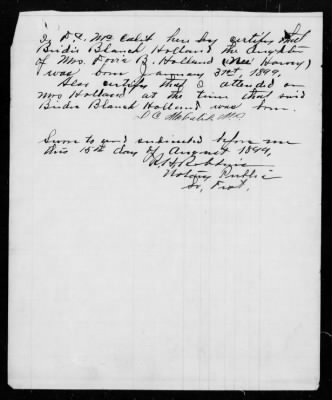 I, D.C. McCalib hereby certify that
Birdie Blanch Holland the daughter
of Mrs. Dovie B. Holland (nee Harvey)
was born January 31st, 1899.
Also certify that I attended on
Mrs Holland at the time that said
Birdie Blanch Holland was born.
D C McCalib MD
Sworn to and subscribed before me
this 15th day of August 1899,
R H Robbins
Notary Public
So. Dist.